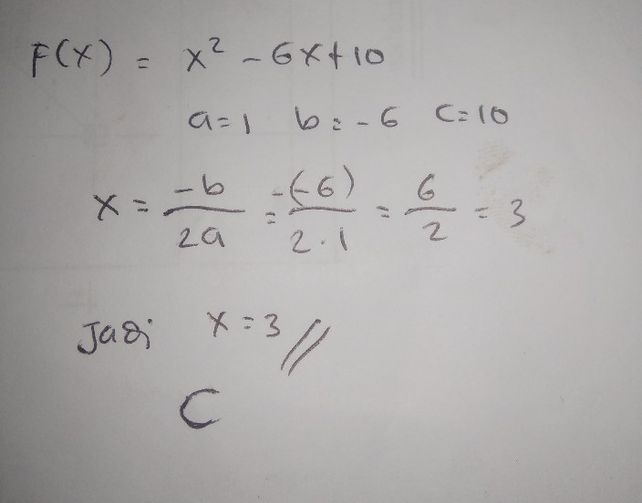 F(x) = x² - 6x+10
a=1 b=-6 c=10
x = -b/2a = -(-6)/2·1 = 6/2 = 3
Jadi x=3 //
C